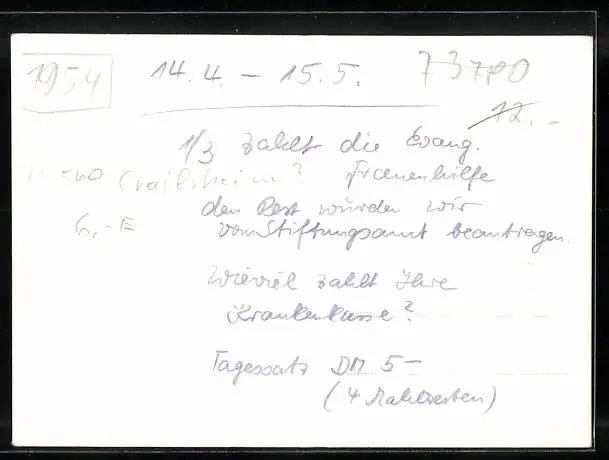 1954
14.4. – 15.5.
12.-
1/3 zahlt die Evang.
Frauenhilfe
Crailsheim?
den Rest würden wir
vom Stiftungsamt beantragen.
6,-E
Wieviel zahlt Ihre
Krankenkasse?
Tagessatz DM 5-
(4 Mahlzeiten)